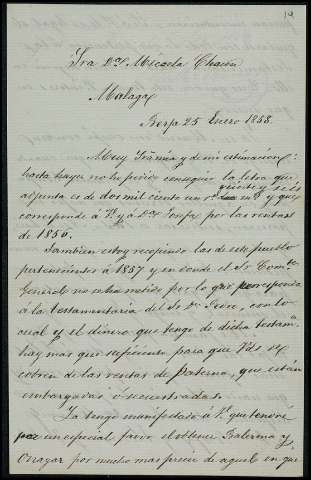 Sra Dª Micaela Chacon
Malaga
Berja 25 Enero 1858.
Muy Sra mia y de mi estimacion:
hasta hoy no he podido conseguir la letra que
adjunta es de dos mil ciento un rˢ
quince y seis
mrˢ y que
corresponde á V. y á Dª Josefa por las rentas
de 1856.
Tambien estoy recojiendo las de este pueblo
pertenecientes á 1857 y en donde el Sr Comte
General no se ha metido por lo que corresponde
á la testamentaria del Sr Dn, con lo
cual y el dinero que tengo de dicha testamᵃ
hay mas que suficiente para que Vds se
cobren de las rentas de Paterna, que están
embargadas ó secuestradas.
Ya tengo manifestado á V. que tendré
un especial favor el obtener Balerma y
por mucho mas precio de aquel en que